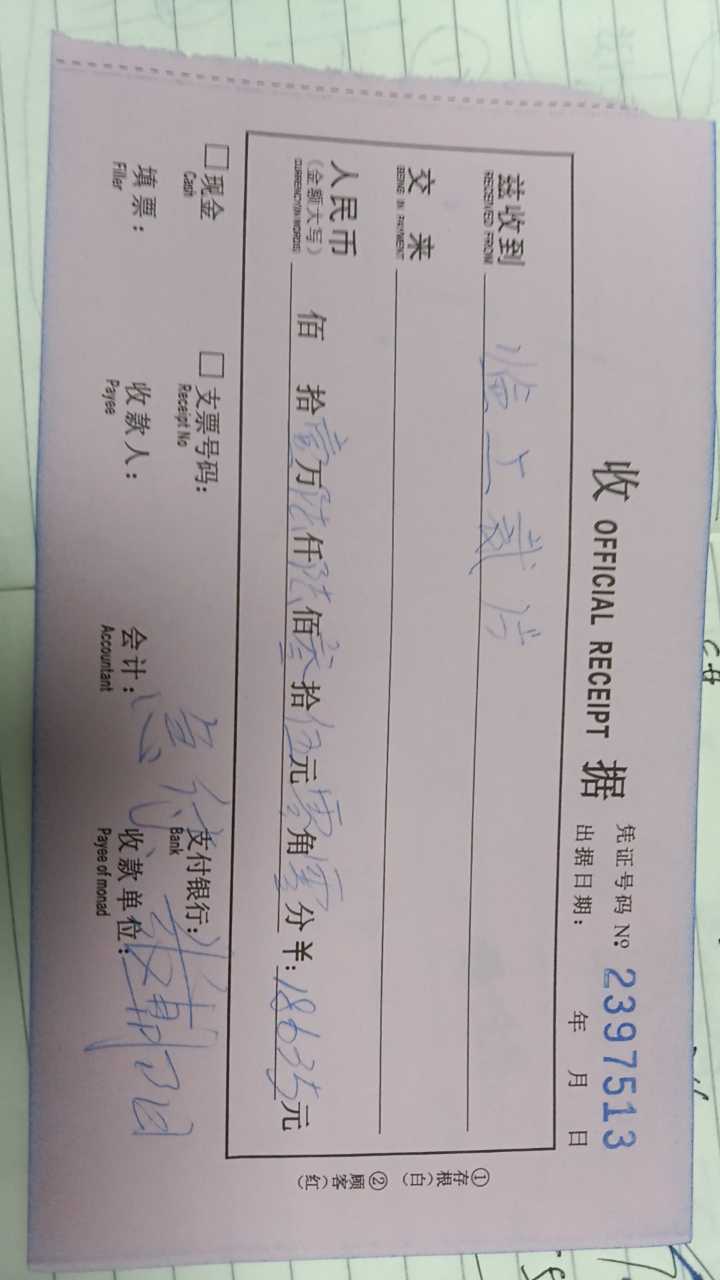 收 OFFICIAL RECEIPT 据
凭证号码 Nº 2397513
出据日期： 年 月 日
兹收到
RECEIVED FROM
交来
BEING IN PAYMENT
人民币 佰 拾 壹 万 陆 仟 陆 佰 叁 拾 伍 元 零 角 零 分 ￥: 18635 元
（金额大写）
CURRENCY(IN WORDS)
①存根（白） ②顾客（红）
□现金 □支票号码： 支付银行：
Cash Receipt No Bank
填票： 收款人： 会计： 收款单位：
Filler Payee Accountant Payee of monad